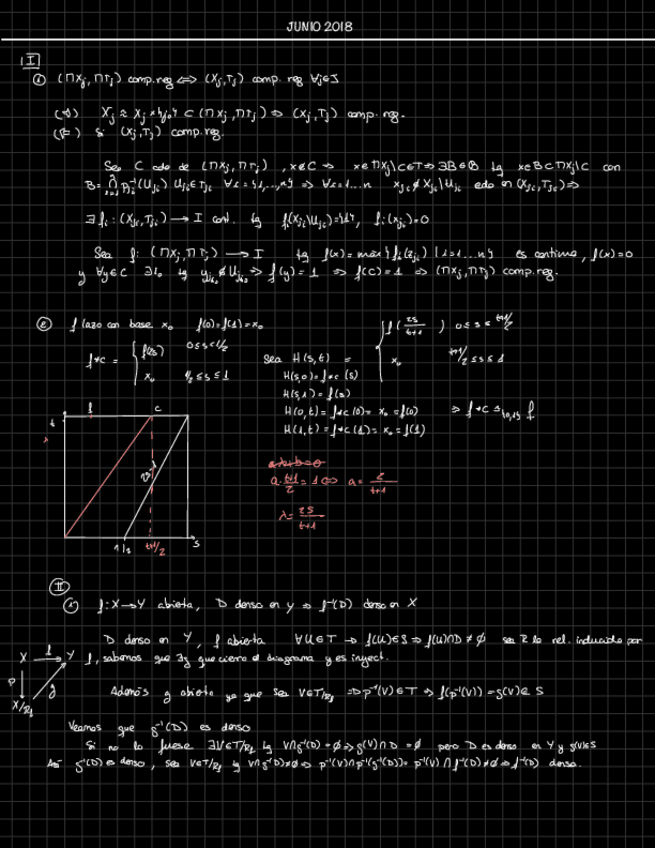 JUNIO 2018
I
① (ΠXj, ΠTj) comp. reg ⇔ (Xj, Tj) comp. reg ∀j∈J
(⇒) Xj ≈ Xj × ⊂ (ΠXj, ΠTj) ⇒ (Xj, Tj) comp. reg.
(⇐) Si (Xj, Tj) comp. reg.
Sea C cdo de (ΠXj, ΠTj), x∉C ⇒ x∈ΠXj\C∈T ⇒ ∃B∈B tq x∈B⊂ΠXj\C con
B= ∩ Pji⁻¹(Uji) Uji∈Tji ∀i=1,...,n ⇒ ∀i=1...n xji∉Xji\Uji cdo en (Xji, Tji) ⇒
∃ fi: (Xji, Tji) → I cont. tq fi(Xji\Uji)={1}, fi(xji)=0
Sea f: (ΠXj, ΠTj) → I tq f(x)=max{fi(zji) | i=1...n} es continua, f(x)=0
y ∀y∈C ∃i₀ tq yji₀∉Uji₀ ⇒ f(y)=1 ⇒ f(C)=1 ⇒ (ΠXj, ΠTj) comp. reg.
② f lazo con base x₀ f(0)=f(1)=x₀
f*c = { f(2s) 0≤s≤1/2
x₀ 1/2≤s≤1
Sea H(s,t) = { f(2s/(t+1)) 0≤s≤(t+1)/2
x₀ (t+1)/2≤s≤1
H(s,0)=f*c(s)
H(s,1)=f(s)
H(0,t)=f*c(0)=x₀=f(0) ⇒ f*c ≃{0,1} f
H(1,t)=f*c(1)=x₀=f(1)
t f c
λ
2s
1/2 (t+1)/2 s
a·(t+1)/2=1 ⇔ a=2/(t+1)
λ=2s/(t+1)
II
① f: X→Y abierta, D denso en Y ⇒ f⁻¹(D) denso en X
D denso en Y, f abierta ∀U∈T → f(U)∈S ⇒ f(U)∩D≠∅ sea R la rel. inducida por
f, sabemos que ∃g que cierre el diagrama y es inyect.
X f Y
p g
X/Rf
Además g abierta ya que sea V∈T/Rf ⇒ p⁻¹(V)∈T ⇒ f(p⁻¹(V))=g(V)∈S
Veamos que g⁻¹(D) es denso
Si no lo fuese ∃V∈T/Rf tq V∩g⁻¹(D)=∅ ⇒ g(V)∩D=∅ pero D es denso en Y y g(V)∈S
Así g⁻¹(D) es denso, sea V∈T/Rf y V∩g⁻¹(D)≠∅ ⇒ p⁻¹(V)∩p⁻¹(g⁻¹(D))=p⁻¹(V)∩f⁻¹(D)≠∅ ⇒ f⁻¹(D) denso.